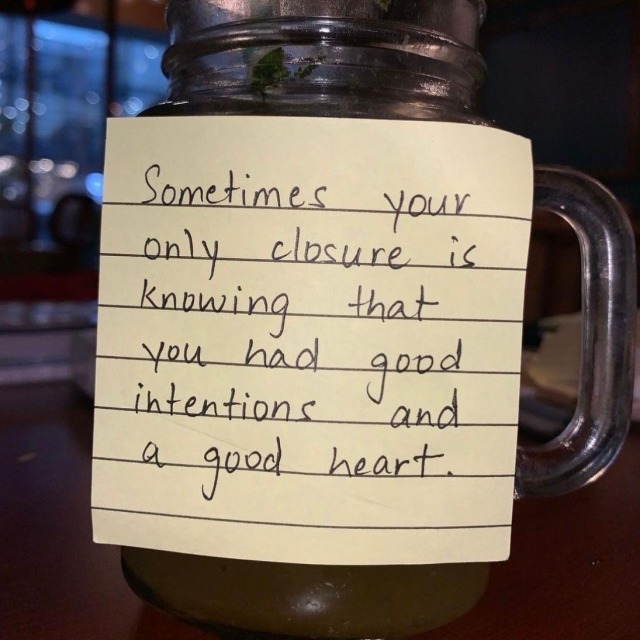 Sometimes your
only closure is
knowing that
you had good
intentions and
a good heart.